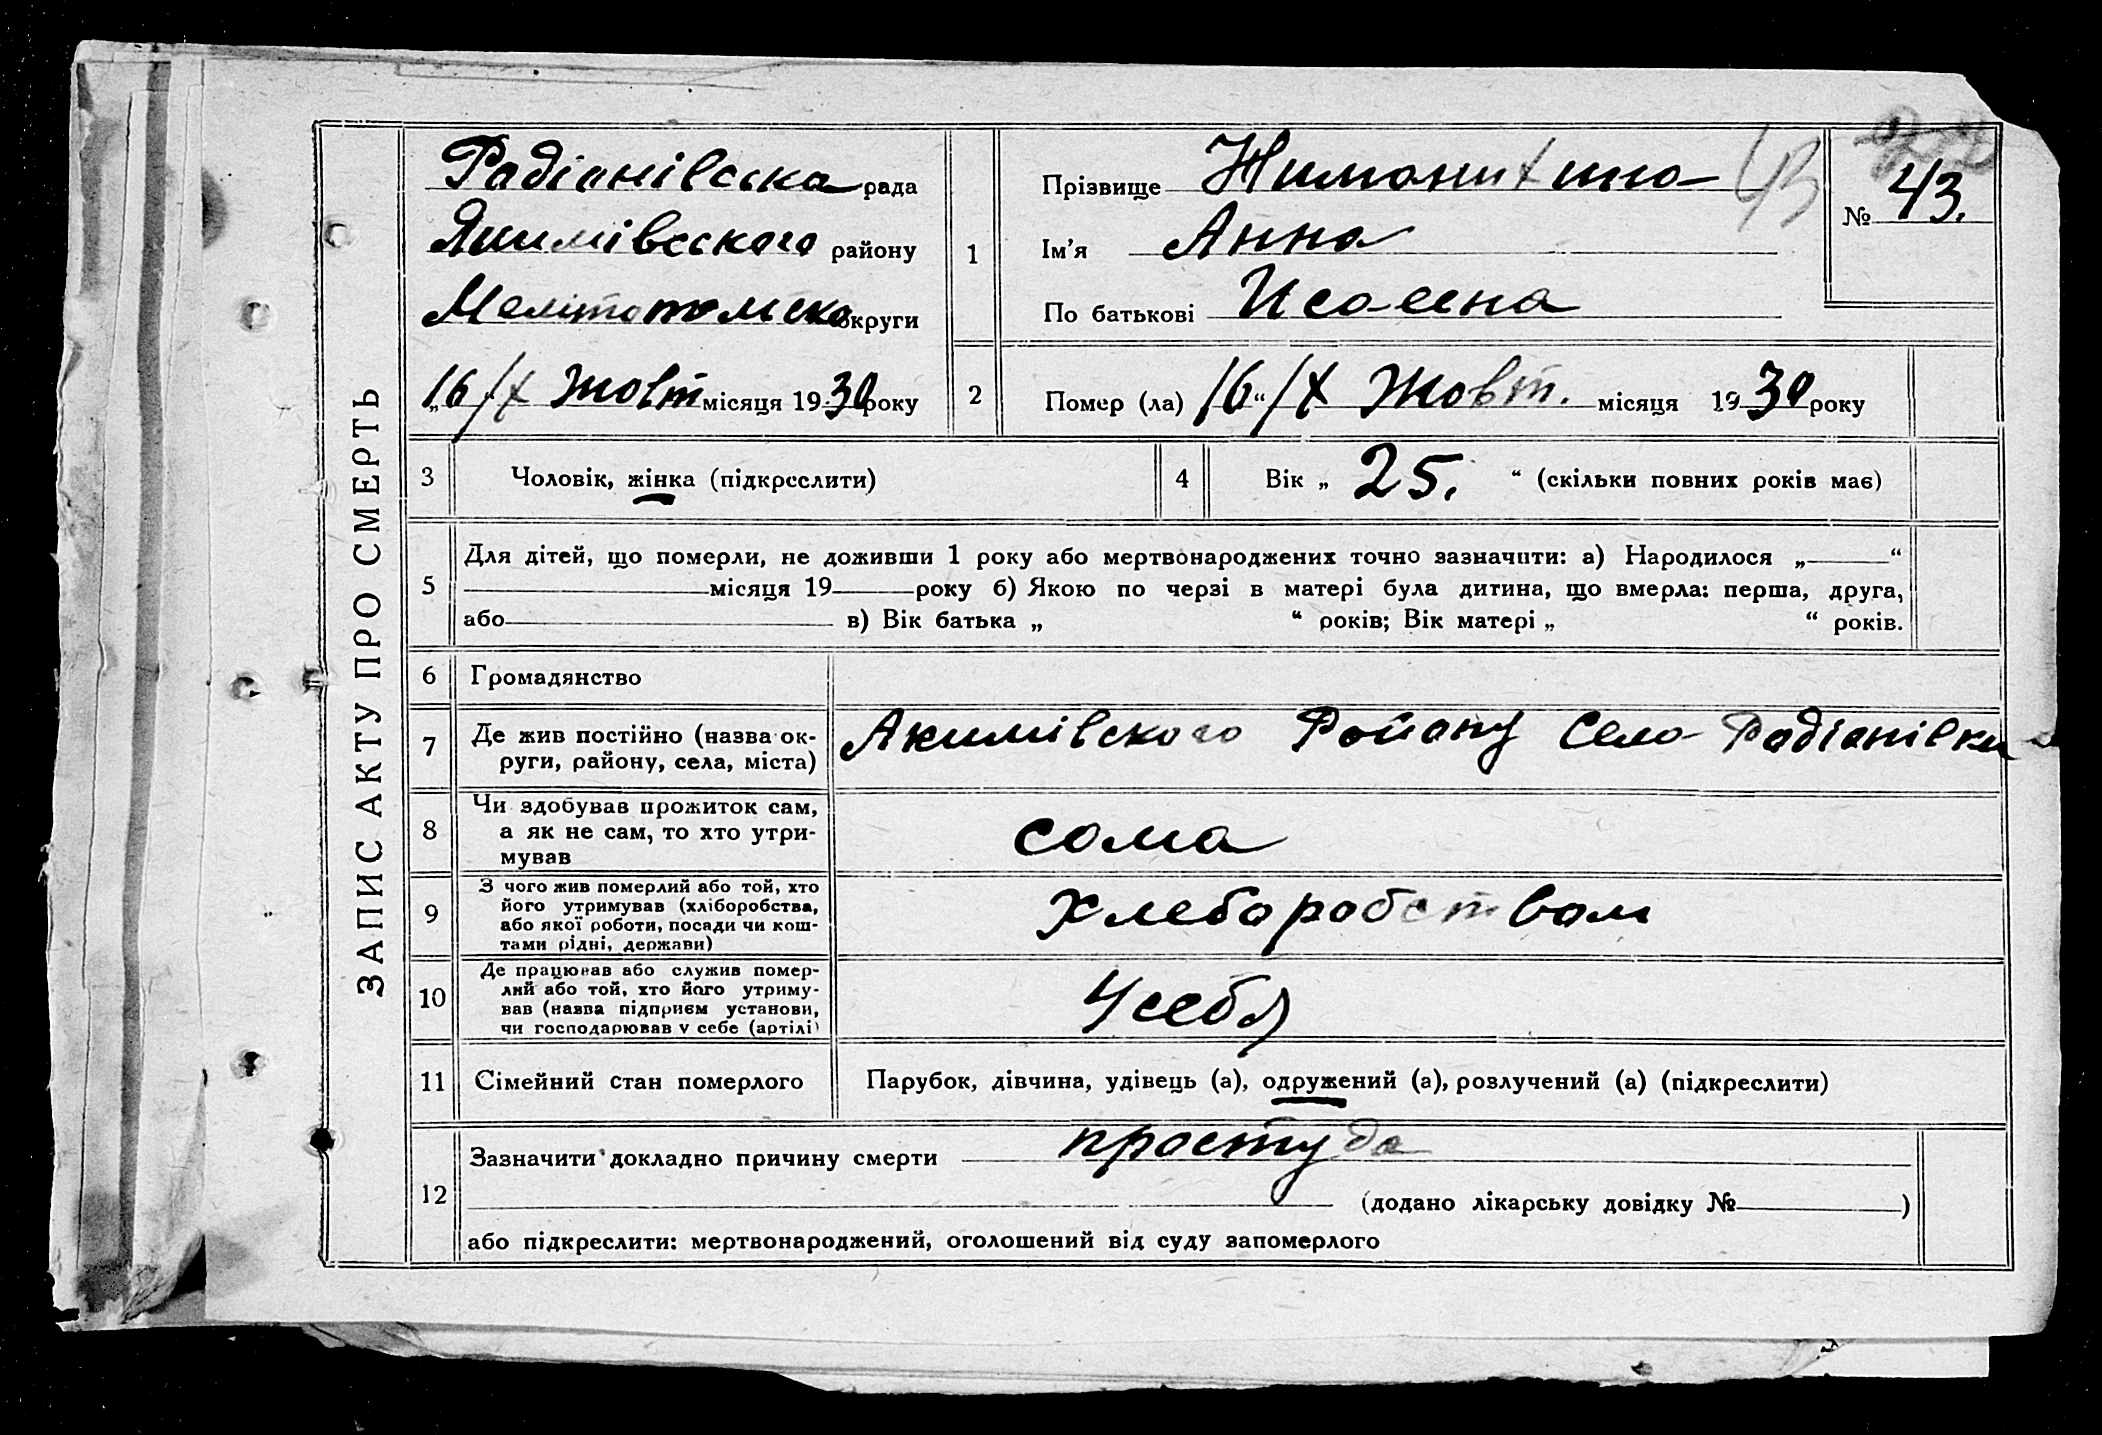 ЗАПИС АКТУ ПРО СМЕРТЬ
Радіанівська рада
Якимівсского району
Мелітопольска округи
„16/X Жовт місяця 1930 року
1
Прізвище
Ім’я Анна
По батькові Исаевна
43
№ 43.
2
Помер (ла) 16“/X Жовт. місяця 1930 року
3 Чоловік, жінка (підкреслити)
4 Вік „ 25. “ (скільки повних років має)
5 Для дітей, що померли, не доживши 1 року або мертвонароджених точно зазначити: а) Народилося „ “
місяця 19 року б) Якою по черзі в матері була дитина, що вмерла: перша, друга,
або в) Вік батька „ “ років; Вік матері „ “ років.
6 Громадянство
7 Де жив постійно (назва ок-
руги, району, села, міста)
Акимівского Району Село Радіанівка
8 Чи здобував прожиток сам,
а як не сам, то хто утри-
мував
сама
9 З чого жив померлий або той, хто
його утримував (хліборобства,
або якої роботи, посади чи кош-
тами рідні, держави)
Хлебаробством
10 Де працював або служив помер-
лий або той, хто його утриму-
вав (назва підприєм установи,
чи господарював у себе (артілі)
У себя
11 Сімейний стан померлого
Парубок, дівчина, удівець (а), одружений (а), розлучений (а) (підкреслити)
12 Зазначити докладно причину смерти простуда
(додано лікарську довідку № )
або підкреслити: мертвонароджений, оголошений від суду запомерлого